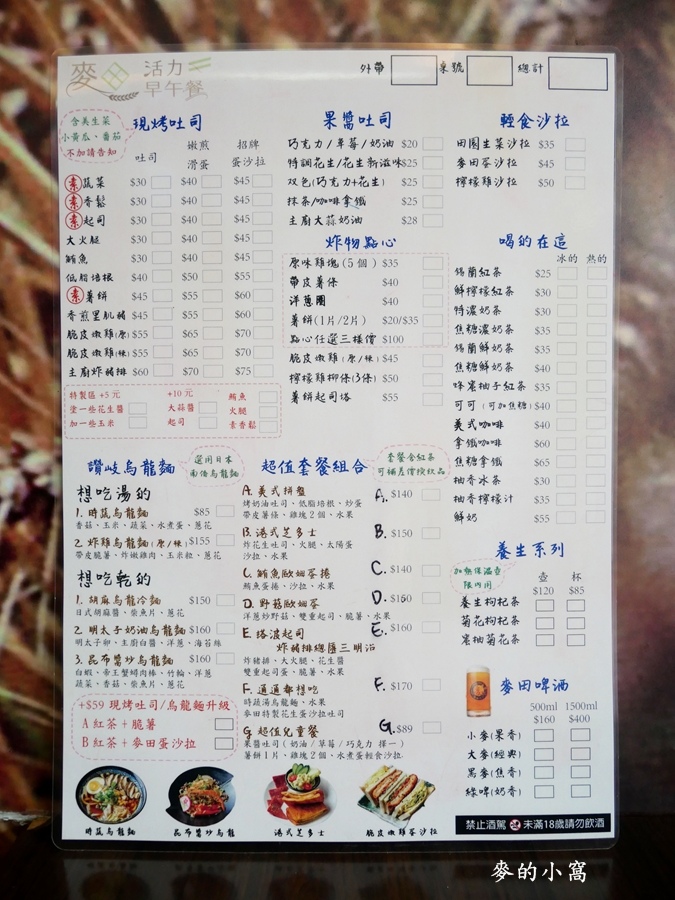 麥田 活力早午餐
外帶 桌號 總計
含美生菜
小黃瓜、番茄
不加請告知
現烤吐司
吐司 嫩煎滑蛋 招牌蛋沙拉
素 蔬菜 $30 $40 $45
素 香鬆 $30 $40 $45
素 起司 $30 $40 $45
大火腿 $30 $40 $45
鮪魚 $30 $40 $45
低脂培根 $40 $50 $55
素 薯餅 $45 $55 $60
香煎里肌豬 $45 $55 $60
脆皮嫩雞(原) $55 $65 $70
脆皮嫩雞(辣) $55 $65 $70
主廚炸豬排 $60 $70 $75
特製區 +5元 +10元 鮪魚
塗一些花生醬 大蒜醬 火腿
加一些玉米 起司 素香鬆
果醬吐司
巧克力/草莓/奶油 $20
特調花生/花生新滋味 $25
双色(巧克力+花生) $25
抹茶/咖啡拿鐵 $25
主廚大蒜奶油 $28
炸物點心
原味雞塊(5個) $35
帶皮薯條 $40
洋蔥圈 $40
薯餅(1片/2片) $20/$35
點心任選三樣價 $100
脆皮嫩雞(原/辣) $45
檸檬雞柳條(3條) $50
薯餅起司塔 $55
輕食沙拉
田園生菜沙拉 $35
麥田蛋沙拉 $45
檸檬雞沙拉 $50
喝的在這
冰的 熱的
錫蘭紅茶 $25
鮮檸檬紅茶 $30
特濃奶茶 $30
焦糖濃奶茶 $35
錫蘭鮮奶茶 $35
焦糖鮮奶茶 $40
蜂蜜柚子紅茶 $35
可可(可加焦糖) $40
美式咖啡 $40
拿鐵咖啡 $60
焦糖拿鐵 $65
柚香冰茶 $30
柚香檸檬汁 $35
鮮奶 $55
讚岐烏龍麵
選用日本
南僑烏龍麵
想吃湯的
1. 時蔬烏龍麵 $85
香菇、玉米、蔬菜、水煮蛋、蔥花
2. 炸雞烏龍麵(原/辣) $155
帶皮脆薯、炸嫩雞肉、玉米粒、蔥花
想吃乾的
1. 胡麻烏龍冷麵 $150
日式胡麻醬、柴魚片、蔥花
2. 明太子奶油烏龍麵 $160
明太子卵、主廚白醬、洋蔥、海苔絲
3. 昆布醬炒烏龍麵 $160
白蝦、帝王蟹蟳肉棒、竹輪、洋蔥
蔬菜、香菇、柴魚片、蔥花
+$59 現烤吐司/烏龍麵升級
A 紅茶+脆薯
B 紅茶+麥田蛋沙拉
超值套餐組合
套餐含紅茶
可補差價換飲品
A. 美式拼盤 A. $140
烤奶油吐司、低脂培根、炒蛋
帶皮薯條、雞塊2個、水果
B. 港式芝多士 B. $150
炸花生吐司、火腿、太陽蛋
沙拉、水果
C. 鮪魚歐姆蛋捲 C. $140
鮪魚蛋捲、沙拉、水果
D. 野菇歐姆蛋 D. $150
洋蔥炒野菇、雙重起司、脆薯、水果
E. 搭波起司 E. $160
炸豬排總匯三明治
炸豬排、大火腿、花生醬
雙重起司蛋、脆薯、水果
F. 通通都想吃 F. $170
時蔬湯烏龍麵、水果
麥田特製花生蛋沙拉吐司
G. 超值兒童餐 G. $89
果醬吐司(奶油/草莓/巧克力 擇一)
薯餅1片、雞塊2個、水煮蛋輕食沙拉
養生系列
加熱保溫壺
限內用
壺 杯
$120 $85
養生枸杞茶
菊花枸杞茶
蜜柚菊花茶
麥田啤酒
500ml 1500ml
$160 $400
小麥(果香)
大麥(經典)
黑麥(焦香)
綠啤(奶香)
時蔬烏龍麵 昆布醬炒烏龍 港式芝多士 脆皮嫩雞蛋沙拉
禁止酒駕 未滿18歲請勿飲酒
麥的小窩